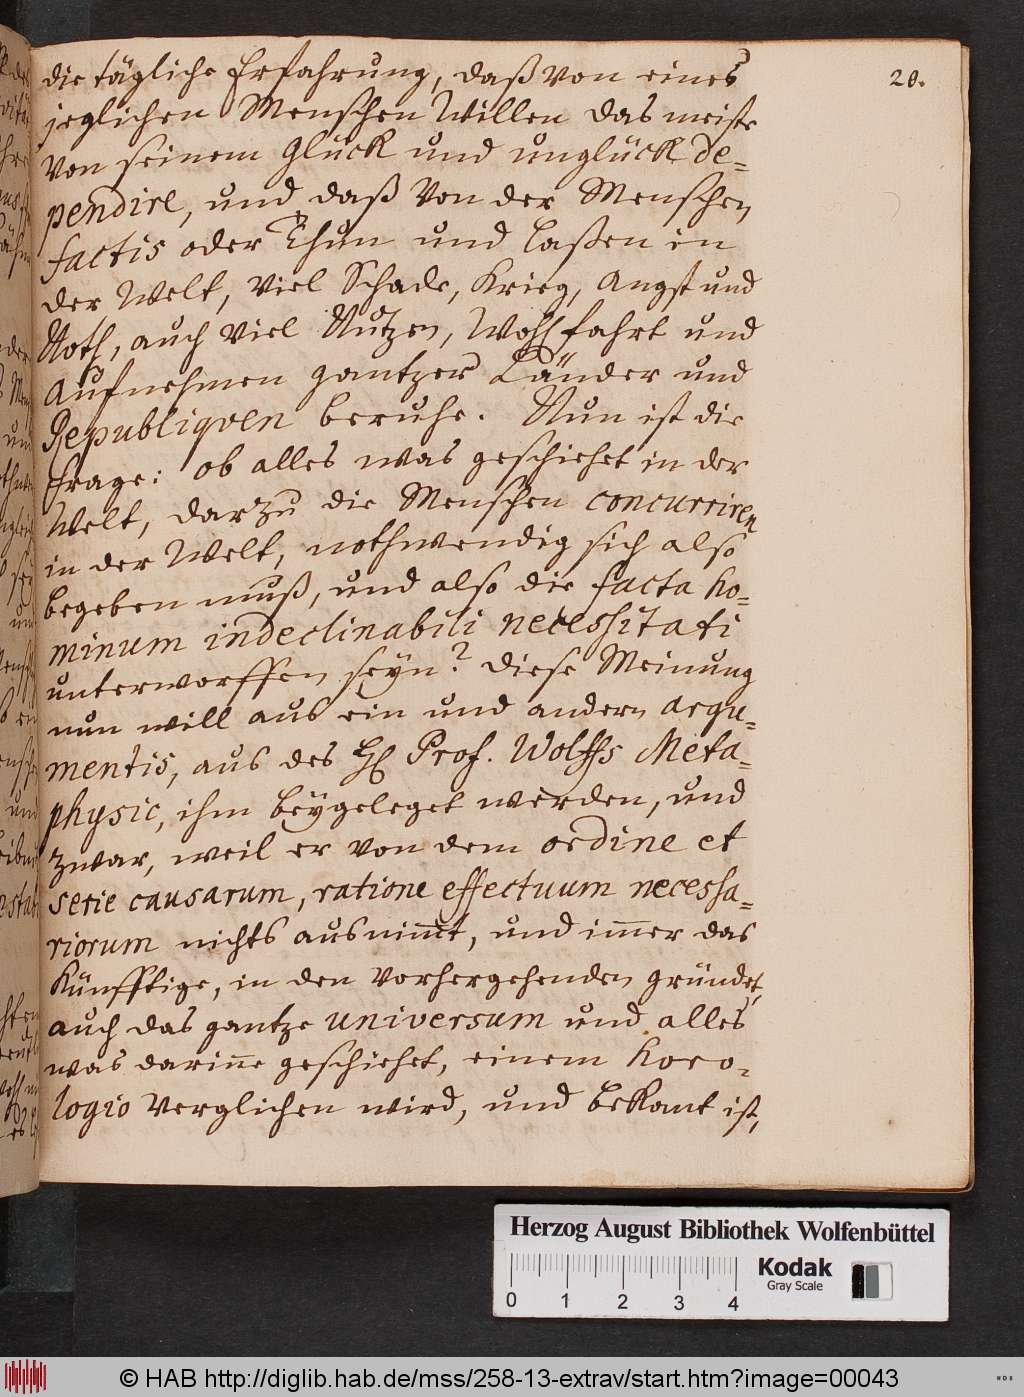 20.
die tägliche Erfahrung, daß von eines
jeglichen Menschen Willen das meiste
von seinem Glück und unglück de-
pendire, und daß von der Menschen
factis oder Thun und laßen in
der Welt, viel Schade, Krieg, Angst und
Noth, auch viel Nutzen, Wohlfahrt und
Aufnehmen gantzer Länder und
Republiqven beruhe. Nun ist die
frage: ob alles was geschiehet in der
Welt, darzu die Menschen concurriren
in der Welt, nothwendig sich also
begeben muß, und also die facta ho-
minum indeclinabili necessitati
unterworffen seyn? Diese Meinung
nun will aus ein und andern argu-
mentis, aus des H. Prof. Wolffs Meta-
physic, ihm beygeleget werden, und
zwar, weil er von dem ordine et
serie causarum, ratione effectuum necessa-
riorum nichts ausnim̄t, und im̄er das
Künfftige, in den vorhergehenden gründet,
auch das gantze universum und alles
was darin̄e geschiehet, einem horo-
logio verglichen wird, und bekant ist,
Herzog August Bibliothek Wolfenbüttel
Kodak
Gray Scale
0 1 2 3 4
© HAB http://diglib.hab.de/mss/258-13-extrav/start.htm?image=00043